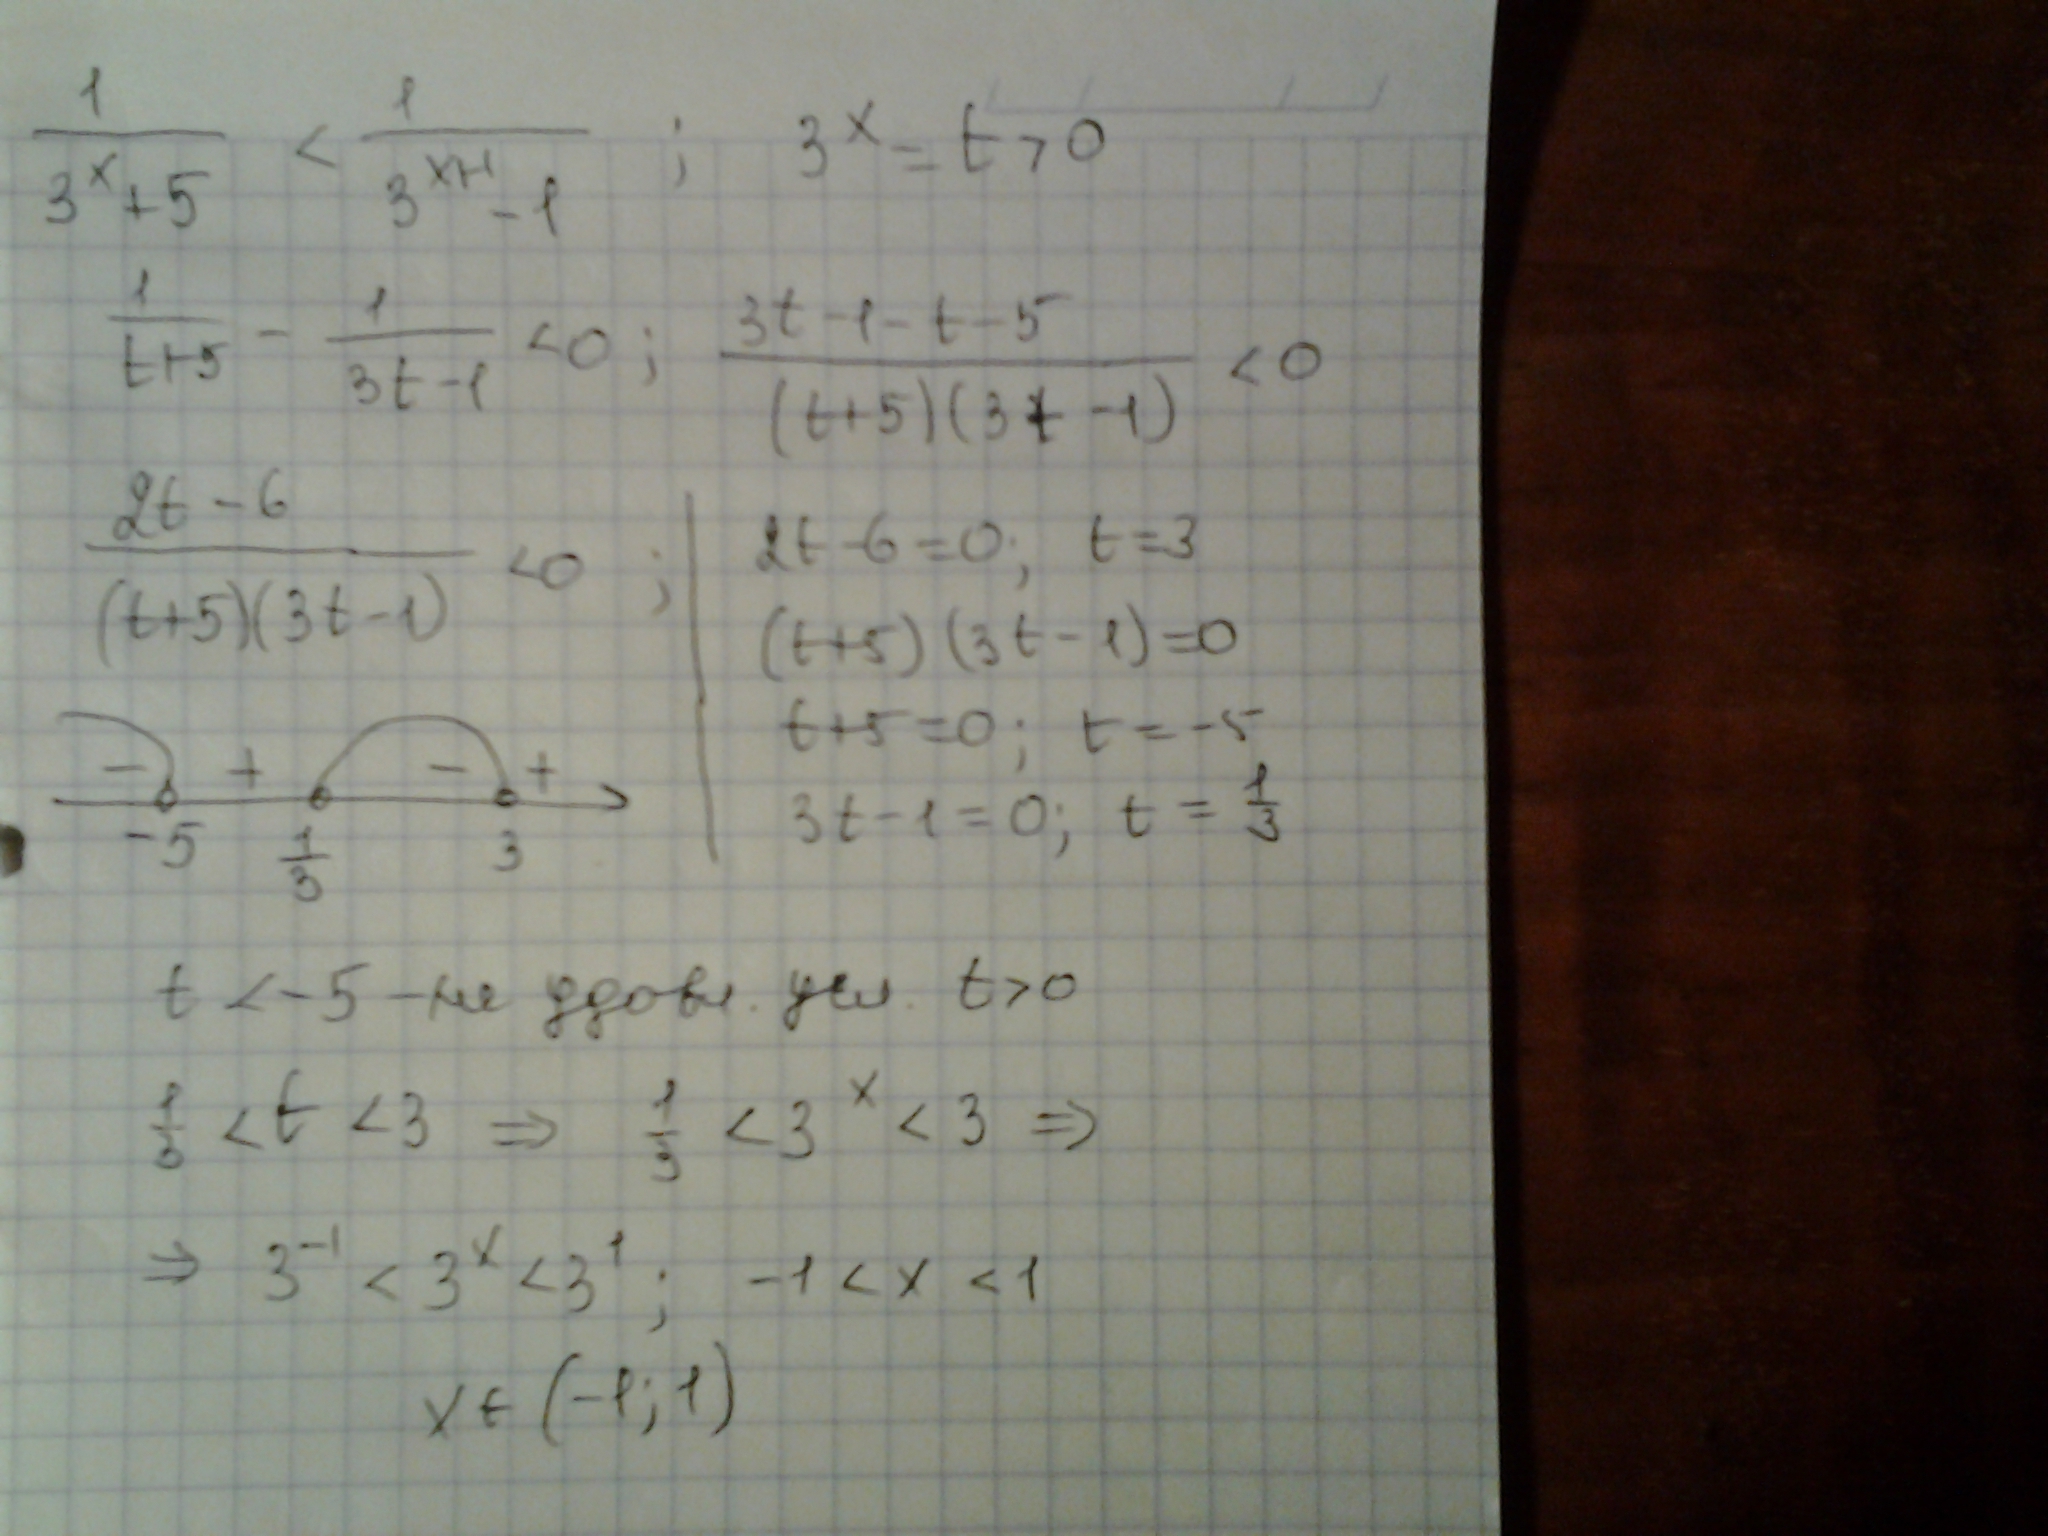 1/(3^x+5) < 1/(3^(x+1)-1) ; 3^x = t > 0
1/(t+5) - 1/(3t-1) < 0 ; (3t-1-t-5)/((t+5)(3t-1)) < 0
(2t-6)/((t+5)(3t-1)) < 0 ;
2t-6=0; t=3
(t+5)(3t-1)=0
t+5=0; t=-5
3t-1=0; t=1/3
- + - +
-5 1/3 3
t < -5 - не удовл. усл. t>0
1/3 < t < 3 ⇒ 1/3 < 3^x < 3 ⇒
⇒ 3^-1 < 3^x < 3^1 ; -1 < x < 1
x ∈ (-1; 1)